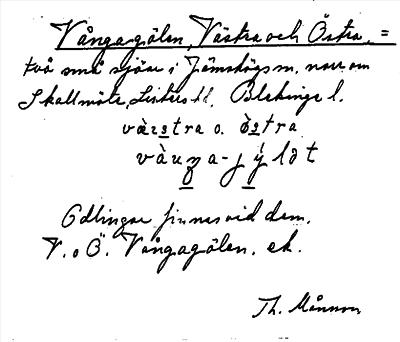 Vångagölen, Västra och Östra, =
två små sjöar i Jämshögs sn, norr om
Skallmöte, Listers hd, Blekinge l.
Odlingar finnas vid dem.
V. o Ö. Vångagölen. ek.
Th. Månsson